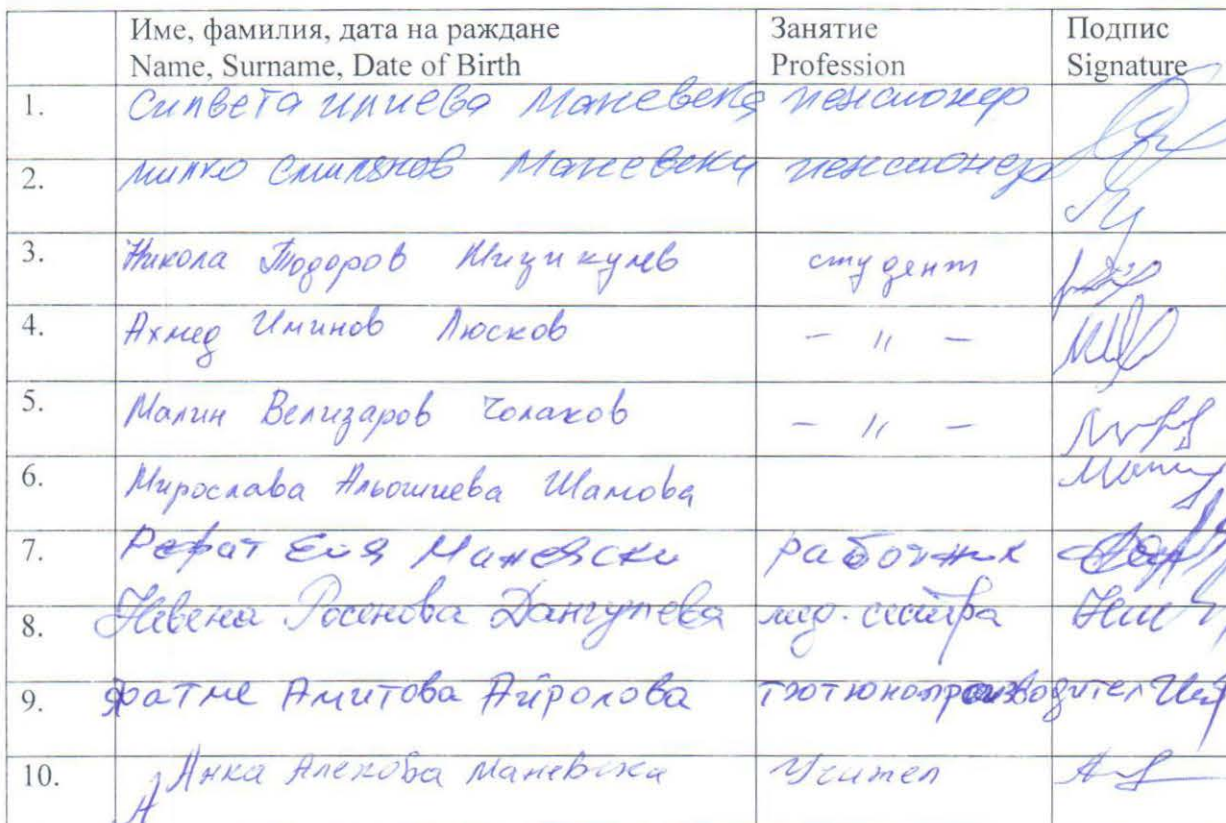 Име, фамилия, дата на раждане Занятие Подпис
Name, Surname, Date of Birth Profession Signature
1. Силвета Илиева Маневска пенсионер
2. Милко Смилянов Маневски пенсионер
3. Никола Тодоров Мицикулев студент
4. Ахмед Иминов Люсков – 11 –
5. Малин Велизаров Чолаков – 11 –
6. Мирослава Альошиева Шамова
7. Рефат Маневски работник
8. Невена Росенова Дангулева мед. сестра
9. Фатме Амитова Айролова тютюнопроизводител
10. Анка Алекова Маневска Учител